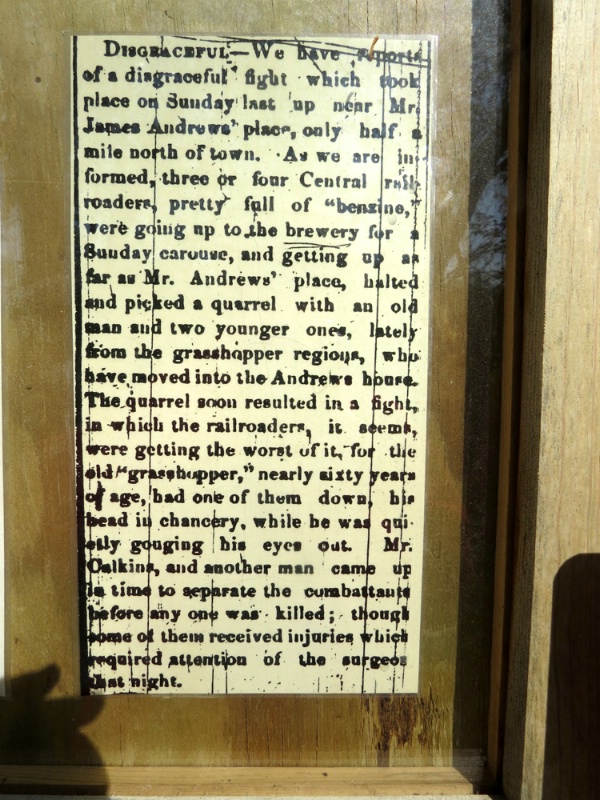 DISGRACEFUL—We have reports
of a disgraceful fight which took
place on Sunday last up near Mr.
James Andrews' place, only half a
mile north of town. As we are in-
formed, three or four Central rail-
roaders, pretty full of "benzine,"
were going up to the brewery for a
Sunday carouse, and getting up as
far as Mr. Andrews' place, halted
and picked a quarrel with an old
man and two younger ones, lately
from the grasshopper regions, who
have moved into the Andrews house.
The quarrel soon resulted in a fight,
in which the railroaders, it seems,
were getting the worst of it, for the
old "grasshopper," nearly sixty years
of age, had one of them down, his
head in chancery, while he was qui-
etly gouging his eyes out. Mr.
Calkins, and another man came up
in time to separate the combattants
before any one was killed; though
some of them received injuries which
required attention of the surgeon
that night.